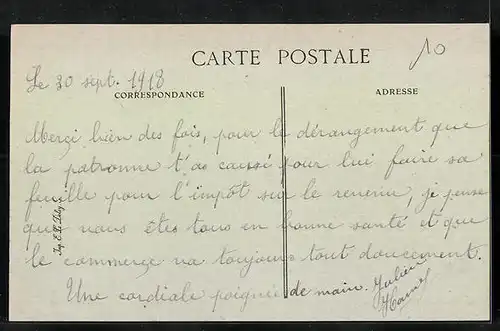 CARTE POSTALE
10
Le 30 sept. 1918
CORRESPONDANCE
ADRESSE
Merçi bien des fois, pour le dérangement que
la patronne t'as causé pour lui faire sa
feuille pour l'impôt sur le revenu, je pense
que vous êtes tous en bonne santé et que
le commerce va toujours tout doucement.
Une cordiale poignée de main. Julien